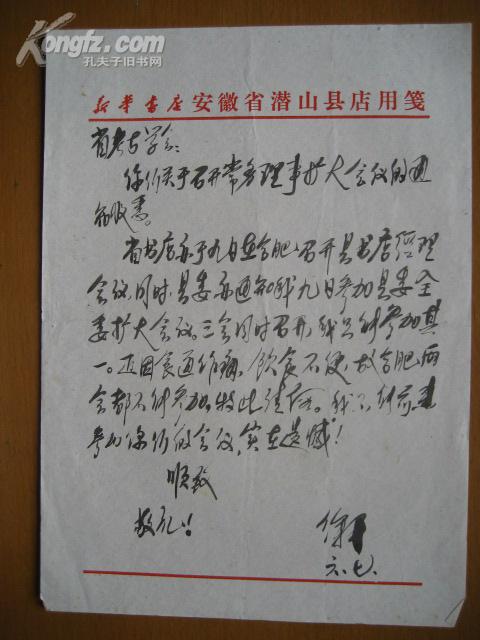 Kongfz.com
孔夫子旧书网
新华书店 安徽省潜山县店用笺
省考古学会:
你们关于召开常务理事扩大会议的通
知收悉。
省书店亦于九日在合肥召开县书店经理
会议,同时县委亦通知我九日参加县委全
委扩大会议。三会同时召开,我只能参加其
一。正因食道作痛,饮食不便,故合肥两
会都不能参加,特此请假。我不能前来
参加你们的会议,实在遗憾!
顺致
敬礼!
徐
六.七.